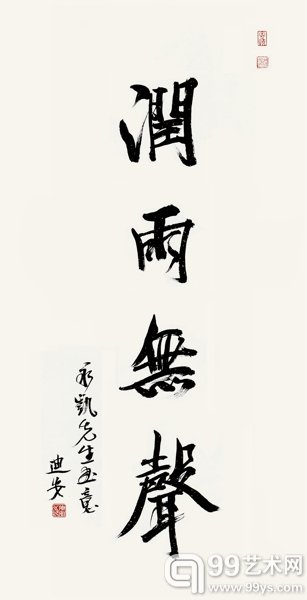 潤雨無聲
永凱先生画意
迪安
99艺术网
www.99ys.com